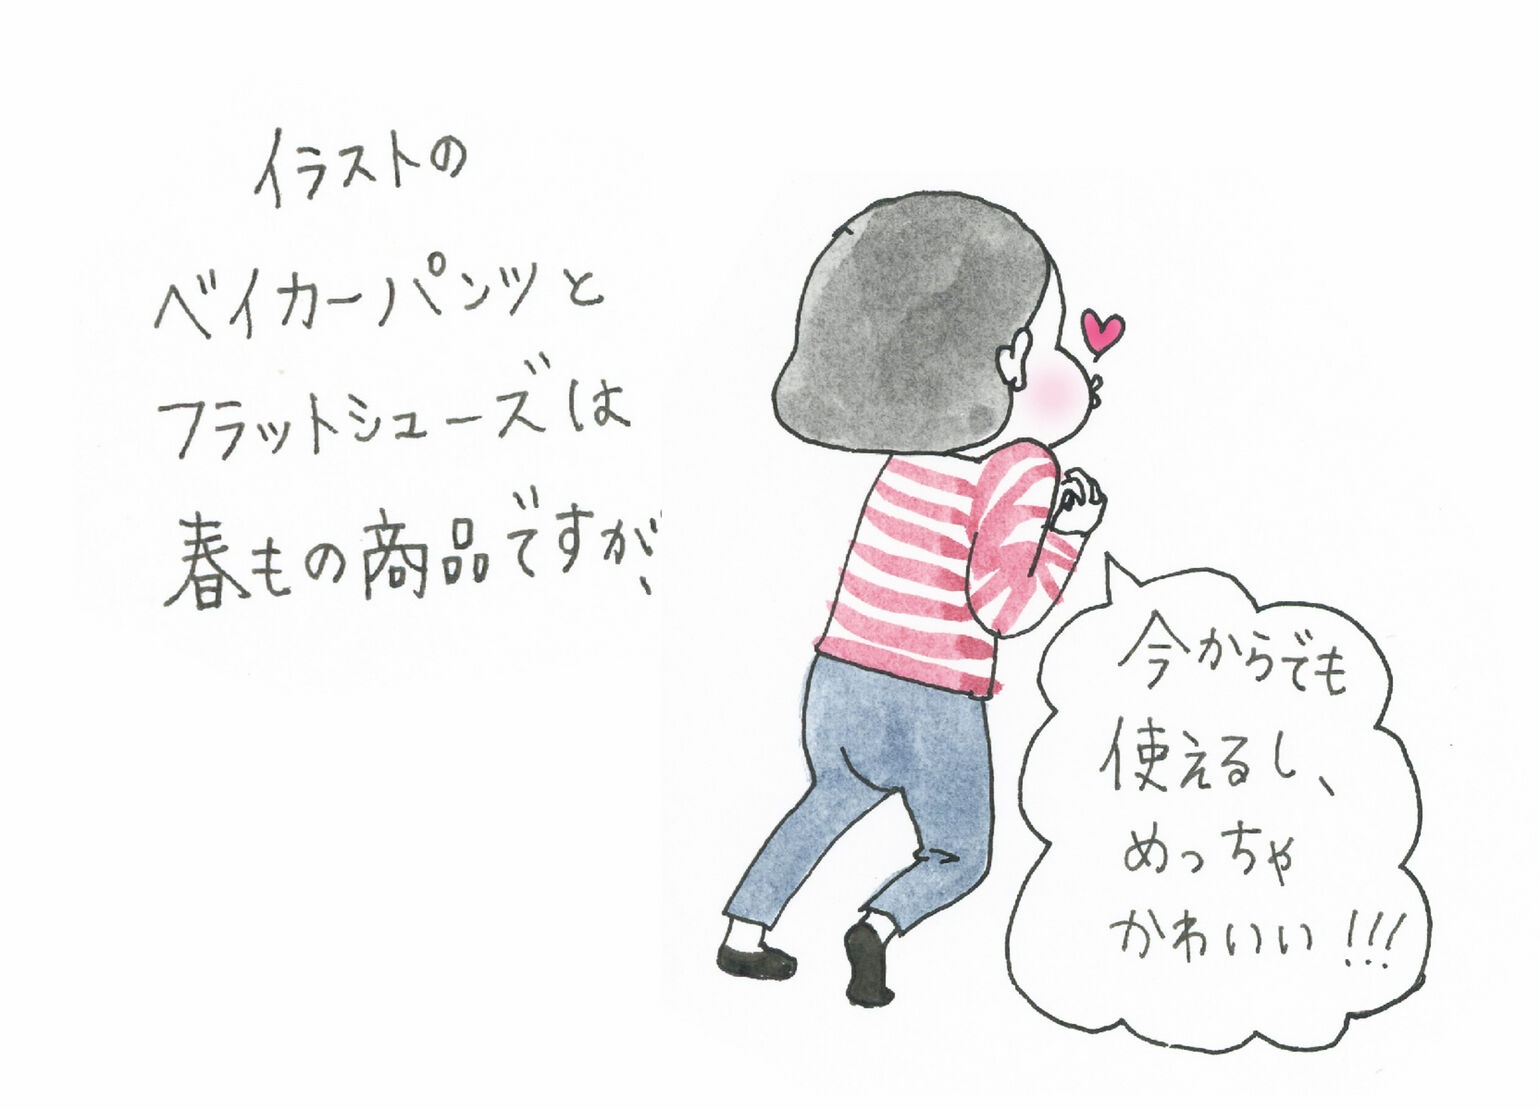 イラストの
ベイカーパンツと
フラットシューズは
春もの商品ですが、
今からでも
使えるし、
めっちゃ
かわいい!!!